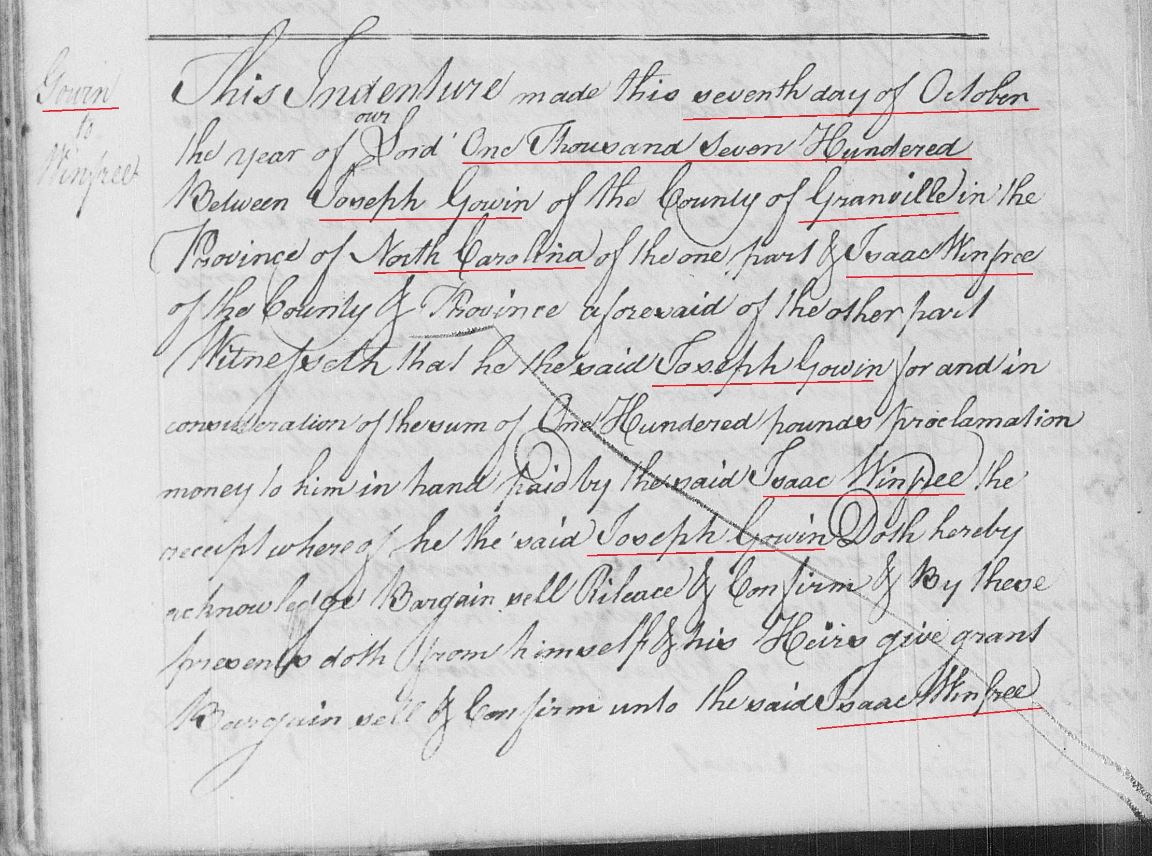 Gowin
to
Winfree
This Indenture made this seventh day of October
the year of our Lord One Thousand Seven Hundered
Between Joseph Gowin of the County of Granville in the
Province of North Carolina of the one part & Isaac Winfree
of the County & Province aforesaid of the other part
Witnesseth that he the said Joseph Gowin for and in
consideration of the sum of One Hundered pounds proclamation
money to him in hand paid by the said Isaac Winfree the
receipt where of he the said Joseph Gowin Doth hereby
acknowledge Bargain sell Rileace & Confirm & By these
presents doth from himself & his Heirs give grant
Bargain sell & Confirm unto the said Isaac Winfree